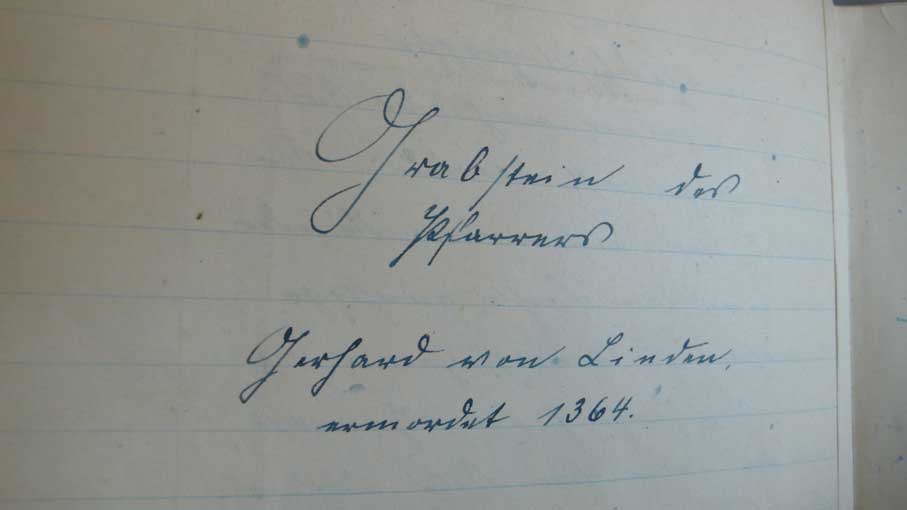 Grabstein des
Pfarrers
Gerhard von Linden,
ermordet 1364.